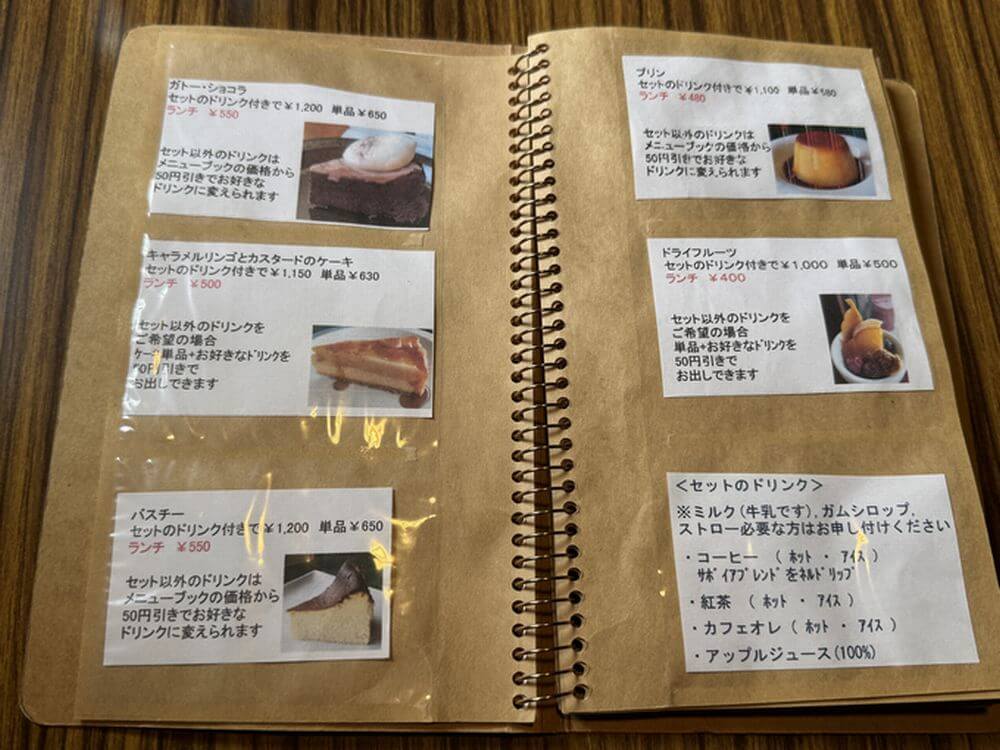 ガトー・ショコラ
セットのドリンク付きで￥1,200 単品￥650
ランチ ￥550
セット以外のドリンクは
メニューブックの価格から
50円引きでお好きな
ドリンクに変えられます
キャラメルリンゴとカスタードのケーキ
セットのドリンク付きで￥1,150 単品￥630
ランチ ￥500
セット以外のドリンクを
ご希望の場合
ケーキ単品+お好きなドリンクを
50円引きで
お出しできます
バスチー
セットのドリンク付きで￥1,200 単品￥650
ランチ ￥550
セット以外のドリンクは
メニューブックの価格から
50円引きでお好きな
ドリンクに変えられます
プリン
セットのドリンク付きで￥1,100 単品￥580
ランチ ￥480
セット以外のドリンクは
メニューブックの価格から
50円引きでお好きな
ドリンクに変えられます
ドライフルーツ
セットのドリンク付きで￥1,000 単品￥500
ランチ ￥400
セット以外のドリンクを
ご希望の場合
単品+お好きなドリンクを
50円引きで
お出しできます
＜セットのドリンク＞
※ミルク(牛乳です),ガムシロップ,
ストロー必要な方はお申し付けください
・コーヒー （ ﾎｯﾄ ・ ｱｲｽ ）
ｻﾎﾞｲｱﾌﾞﾚﾝﾄﾞをﾈﾙﾄﾞﾘｯﾌﾟ
・紅茶 （ ﾎｯﾄ ・ ｱｲｽ ）
・カフェオレ（ ﾎｯﾄ ・ ｱｲｽ ）
・アップルジュース(100%)